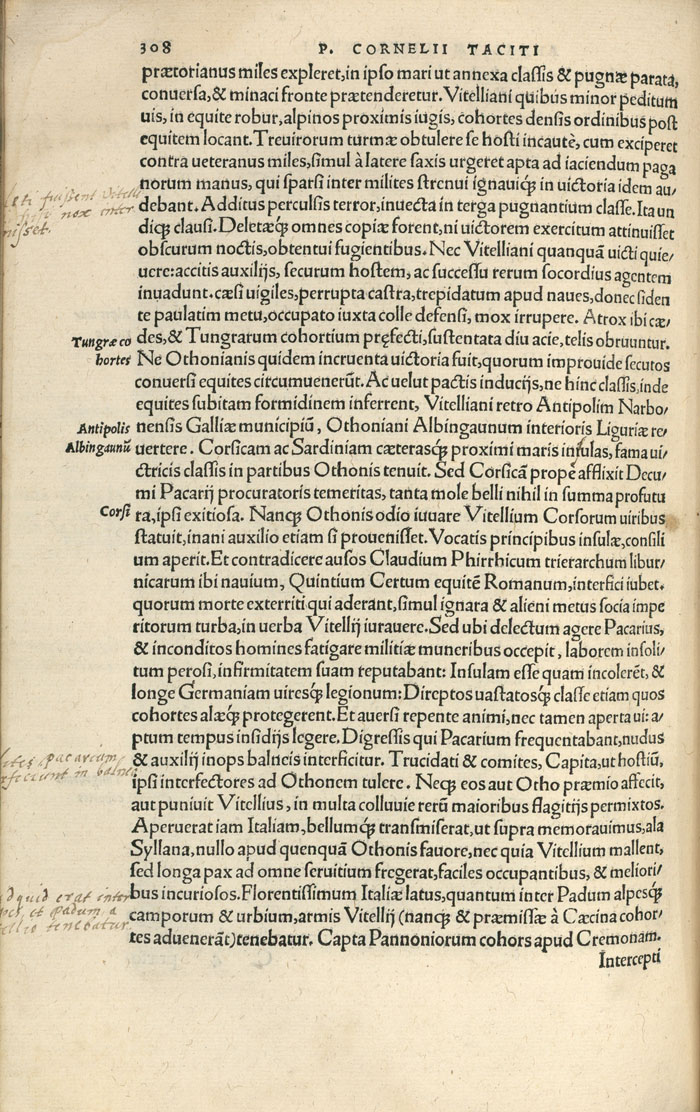 308 P. CORNELII TACITI
prætorianus miles expleret, in ipso mari ut annexa classis & pugnæ parata,
conuersa, & minaci fronte prætenderetur. Vitelliani quibus minor peditum
uis, in equite robur, alpinos proximis iugis, cohortes densis ordinibus post
equitem locant. Treuirorum turmæ obtulere se hosti incautè, cum exciperet
contra ueteranus miles, simul à latere saxis urgeret apta ad iaciendum paga
norum manus, qui sparsi inter milites strenui ignauiq́; in uictoria idem au/
debant. Additus perculsis terror, inuecta in terga pugnantium classe. Ita un
diq́; clausi. Deletæq́; omnes copiæ forent, ni uictorem exercitum attinuisset
obscurum noctis, obtentui fugientibus. Nec Vitelliani quanquā uicti quie/
uere: accitis auxilijs, securum hostem, ac successu rerum socordius agentem
inuadunt. cæsi uigiles, perrupta castra, trepidatum apud naues, donec siden
te paulatim metu, occupato iuxta colle defensi, mox irrupere. Atrox ibi cæ/
Tungræ co
hortes
des, & Tungrarum cohortium pręfecti, sustentata diu acie, telis obruuntur.
Ne Othonianis quidem incruenta uictoria fuit, quorum improuide secutos
conuersi equites circumuenerūt. Ac uelut pactis inducijs, ne hinc classis, inde
equites subitam formidinem inferrent, Vitelliani retro Antipolim Narbo/
Antipolis
nensis Galliæ municipiū, Othoniani Albingaunum interioris Liguriæ re/
Albingaunū
uertere. Corsicam ac Sardiniam cæterasq́; proximi maris insulas, fama ui/
ctricis classis in partibus Othonis tenuit. Sed Corsicā propè afflixit Decu/
mi Pacarij procuratoris temeritas, tanta mole belli nihil in summa profutu
Corsi
ra, ipsi exitiosa. Nanq́; Othonis odio iuuare Vitellium Corsorum uiribus
statuit, inani auxilio etiam si prouenisset. Vocatis principibus insulæ, consili
um aperit. Et contradicere ausos Claudium Phirrhicum trierarchum libur/
nicarum ibi nauium, Quintium Certum equitē Romanum, interfici iubet.
quorum morte exterriti qui aderant, simul ignara & alieni metus socia impe
ritorum turba, in uerba Vitellij iurauere. Sed ubi delectum agere Pacarius,
& inconditos homines fatigare militiæ muneribus occepit, laborem insoli/
tum perosi, infirmitatem suam reputabant: Insulam esse quam incolerēt, &
longe Germaniam uiresq́; legionum: Direptos uastatosq́; classe etiam quos
cohortes alæq́; protegerent. Et auersi repente animi, nec tamen aperta ui: a/
ptum tempus insidijs legere. Digressis qui Pacarium frequentabant, nudus
& auxilij inops balneis interficitur. Trucidati & comites, Capita, ut hostiū,
ipsi interfectores ad Othonem tulere. Neq́; eos aut Otho præmio affecit,
aut puniuit Vitellius, in multa colluuie rerū maioribus flagitijs permixtos.
Aperuerat iam Italiam, bellumq́; transmiserat, ut supra memorauimus, ala
Syllana, nullo apud quenquā Othonis fauore, nec quia Vitellium mallent,
sed longa pax ad omne seruitium fregerat, faciles occupantibus, & meliori/
bus incuriosos. Florentissimum Italiæ latus, quantum inter Padum alpesq́;
camporum & urbium, armis Vitellij (nanq́; & præmissæ à Cæcina cohor/
tes aduenerāt) tenebatur. Capta Pannoniorum cohors apud Cremonam.
Intercepti
fuissent Vitelli
nox inter
nisset.
pacarium
in balneo
quid erat inter
et Padum a
tenebatur